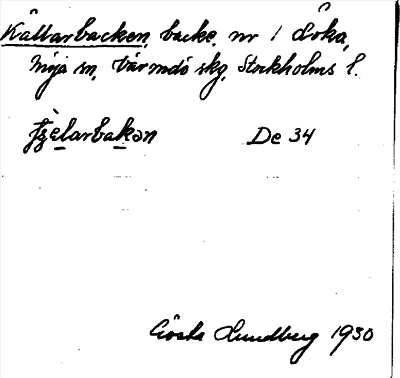 Källarbacken, backe, nr 1 Löka,
Möja sn, Värmdö skg, Stockholms l.
De 34
Gösta Lundberg 1930